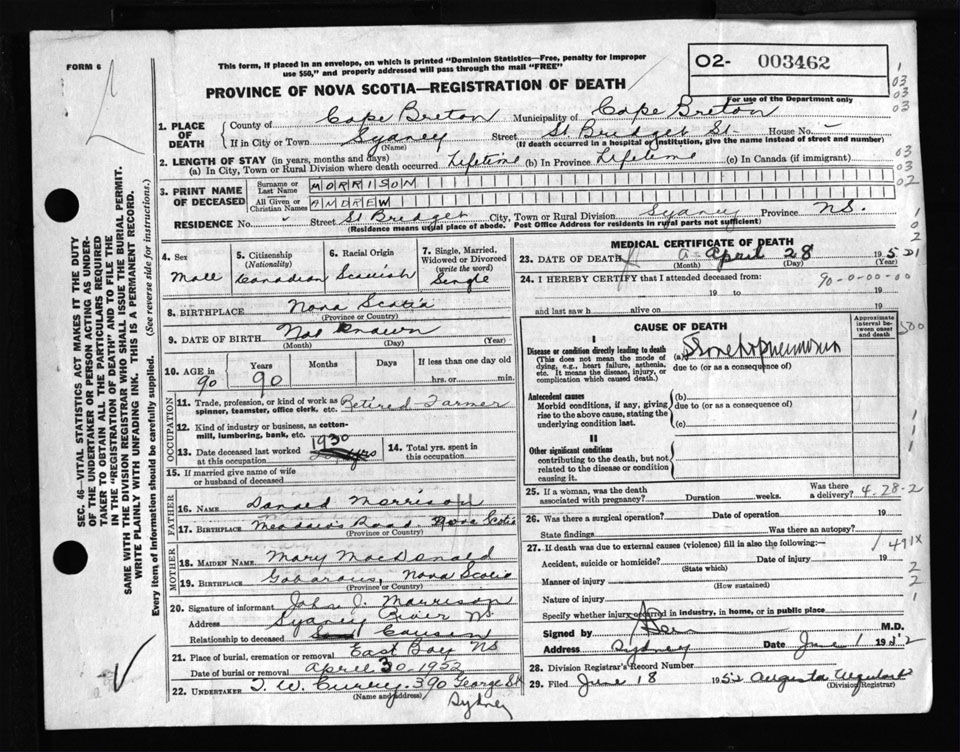 FORM 6
This form, if placed in an envelope, on which is printed "Dominion Statistics—Free, penalty for improper
use $50," and properly addressed will pass through the mail "FREE"
02- 003462
For use of the Department only
PROVINCE OF NOVA SCOTIA—REGISTRATION OF DEATH
1. PLACE OF DEATH County of Cape Breton Municipality of Cape Breton
If in City or Town Sydney (Name) Street St Bridget St House No.
(If death occurred in a hospital or institution, give the name instead of street and number)
2. LENGTH OF STAY (in years, months and days)
(a) In City, Town or Rural Division where death occurred Lifetime (b) In Province Lifetime (c) In Canada (if immigrant)
3. PRINT NAME OF DECEASED Surname or Last Name MORRISON
All Given or Christian Names ANDREW
RESIDENCE No. Street St Bridget City, Town or Rural Division Sydney Province N.S.
(Residence means usual place of abode. Post Office Address for residents in rural parts not sufficient)
4. Sex Male
5. Citizenship (Nationality) Canadian
6. Racial Origin
7. Single, Married, Widowed or Divorced (write the word) Single
8. BIRTHPLACE Nova Scotia
(Province or Country)
9. DATE OF BIRTH Not Known
(Month) (Day) (Year)
10. AGE IN 90 Years 90 Months Days If less than one day old hrs. or min.
OCCUPATION
11. Trade, profession or kind of work as spinner, teamster, office clerk, etc. Retired Farmer
12. Kind of industry or business, as cotton-mill, lumbering, bank, etc.
13. Date deceased last worked at this occupation 1930
14. Total yrs. spent in this occupation
15. If married give name of wife or husband of deceased
FATHER
16. NAME Morrison
17. BIRTHPLACE Meadows Road Nova Scotia
(Province or Country)
MOTHER
18. MAIDEN NAME Mary MacDonald
19. BIRTHPLACE Gabarous, Nova Scotia
(Province or Country)
20. Signature of informant John J. Morrison
Address Sydney River NS
Relationship to deceased Cousin
21. Place of burial, cremation or removal East Bay NS
Date of burial or removal April 30 1952
22. UNDERTAKER T. W. Curry 390 George St
(Name and address)
Sydney
MEDICAL CERTIFICATE OF DEATH
23. DATE OF DEATH April 28 195
(Month) (Day) (Year)
24. I HEREBY CERTIFY that I attended deceased from: 90-0-00-00
19 to 19
and last saw h alive on 19
CAUSE OF DEATH
Approximate interval between onset and death
I
Disease or condition directly leading to death
(This does not mean the mode of dying, e.g., heart failure, asthenia, etc. It means the disease, injury, or complication which caused death.)
(a) Bronchopneumonia
due to (or as a consequence of)
Antecedent causes
Morbid conditions, if any, giving rise to the above cause, stating the underlying condition last.
(b)
due to (or as a consequence of)
(c)
II
Other significant conditions
contributing to the death, but not related to the disease or condition causing it.
25. If a woman, was the death associated with pregnancy? Duration weeks. Was there a delivery? 4-28-2
26. Was there a surgical operation? Date of operation 19
State findings Was there an autopsy?
27. If death was due to external causes (violence) fill in also the following:
491X
Accident, suicide or homicide? (State which) Date of injury 19
Manner of injury
(How sustained)
Nature of injury
Specify whether injury occurred in industry, in home, or in public place
Signed by M.D.
Address Sydney Date June 1 1952
28. Division Registrar's Record Number
29. Filed June 18 1952 Augusta Urquhart
(Division Registrar)
SEC. 46—VITAL STATISTICS ACT MAKES IT THE DUTY
OF THE UNDERTAKER OR PERSON ACTING AS UNDER-
TAKER TO OBTAIN ALL THE PARTICULARS REQUIRED
IN THE "REGISTRATION OF DEATH" AND TO FILE THE
SAME WITH THE DIVISION REGISTRAR WHO SHALL ISSUE THE BURIAL PERMIT.
WRITE PLAINLY WITH UNFADING INK. THIS IS A PERMANENT RECORD.
Every item of information should be carefully supplied. (See reverse side for instructions.)